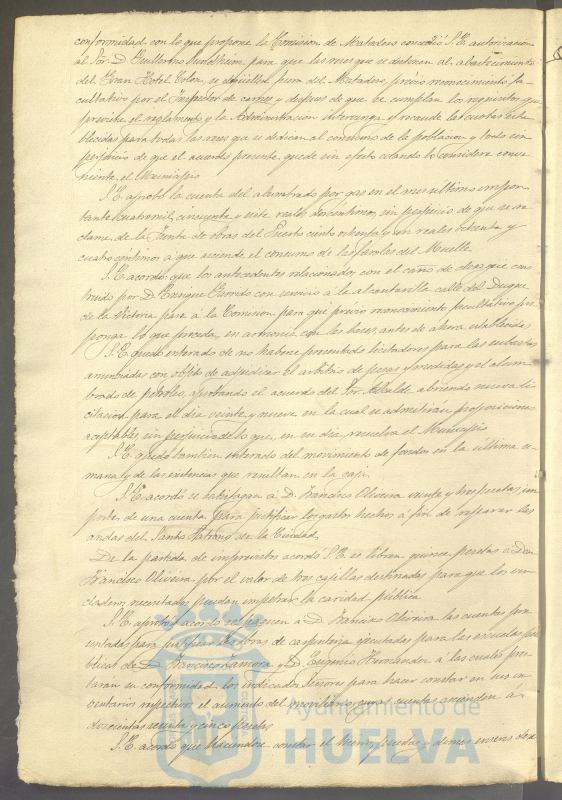 conformidad con lo que propone la Comision de Matadero concedió S.E. autorizacion
al Sor. D. Guillermo Sundheim para que las reses que se destinan al abastecimiento
del Gran Hotel Colon, se degüellen fuera del Matadero, prévio reconocimiento fa-
cultativo por el Inspector de carnes y despues de que se cumplan los requisitos que
previene el reglamento y la Administracion intervenga y recaude las cuotas esta-
blecidas para todas las reses que se dedican al consumo de la poblacion y todo sin
perjuicio de que el acuerdo presente, quede sin efecto cuando lo considere conve-
niente el Municipio
S.E. aprobó la cuenta del alumbrado por gas en el mes último impor-
tante cuatro mil, cincuenta y siete reales céntimos, sin perjuicio de que se re-
clame de la Junta de obras del Puerto ciento ochenta y reales ochenta y
cuatro céntimos á que asciende el consumo de los faroles del Muelle.
S.E. acordó que los antecedentes relacionados con el caño de desagüe cons-
truido por D. Enrique Garrido con servicio á la alcantarilla calle del Duque
de la Victoria pase á la Comision para que prévio reconocimiento facultativo pro-
ponga lo que proceda, en armonia con las bases, antes de ahora establecidas
S.E. quedó enterado de no haberse presentado licitadores para las subastas
anunciadas con objeto de adjudicar el arbitrio de pesas y medidas y el alum-
brado de petróleo, aprobando el acuerdo del Sor. Alcalde abriendo nueva li-
citacion para el dia veinte y nueve en la cual se admitirán proposiciones
aceptables, sin perjuicio de lo que, en su dia, resuelva el Municipio
S.E. quedó tambien enterado del movimiento de fondos en la última se-
mana y de las existencias que resultan en la caja.
S.E. acordó se satisfagan á D. Francisco Oliveira veinte y tres pesetas, im-
portes de una cuenta para justificar los gastos hechos á fin de reparar las
andas del Santo Patrono de la Ciudad.
De la partida de imprevistos acordó S.E. se libren quince pesetas á Don
Francisco Oliveira por el valor de tres cajillas destinadas para que los ver-
daderos necesitados puedan impetrar la caridad pública.
S.E. aprobó y acordó se paguen á D. Francisco Oliveira las cuentas pre-
sentadas para justificar las obras de carpinteria ejecutadas para las escuelas pú-
blicas de D. Francisco Zamora y D. Eugenio Hernandez á las cuales pres-
tarán su conformidad los indicados Señores para hacer constar en sus in-
ventarios respectivos el aumento del moviliario, cuyas cuentas ascienden á
doscientas veinte y cinco pesetas
S.E. acordó que haciéndose constar el hierro, puertas y demas enseres de
Ayuntamiento de
HUELVA